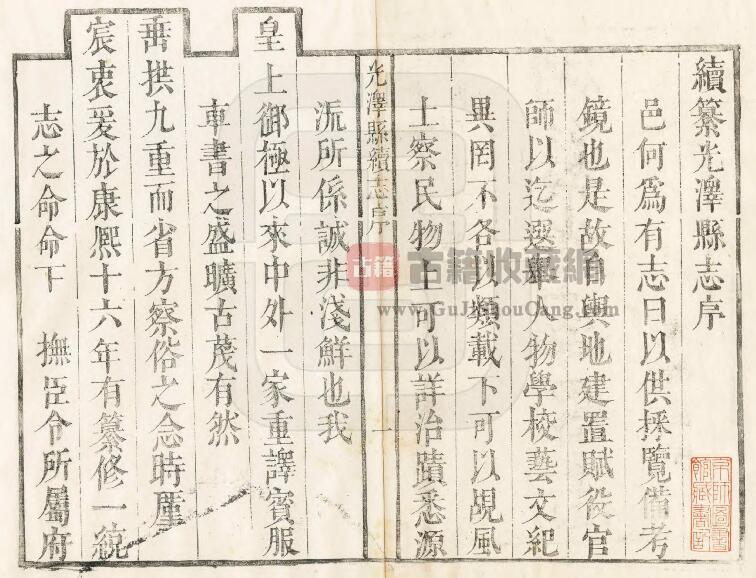 續纂光澤縣志序
邑何爲有志曰以供採覽備考
鏡也是故自輿地建置賦役官
師以迄選舉人物學校藝文紀
異罔不各以類載下可以覘風
土察民物上可以詳治蹟悉源
光澤縣續志序
一
沠所係誠非淺鮮也我
皇上御極以來中外一家重譯賓服
車書之盛曠古茂有然
垂拱九重而省方察俗之念時厪
宸衷爰於康熈十六年有纂修一統
志之命命下 撫臣令所屬府
古籍
古籍收藏網
www.GuJiShouCang.com